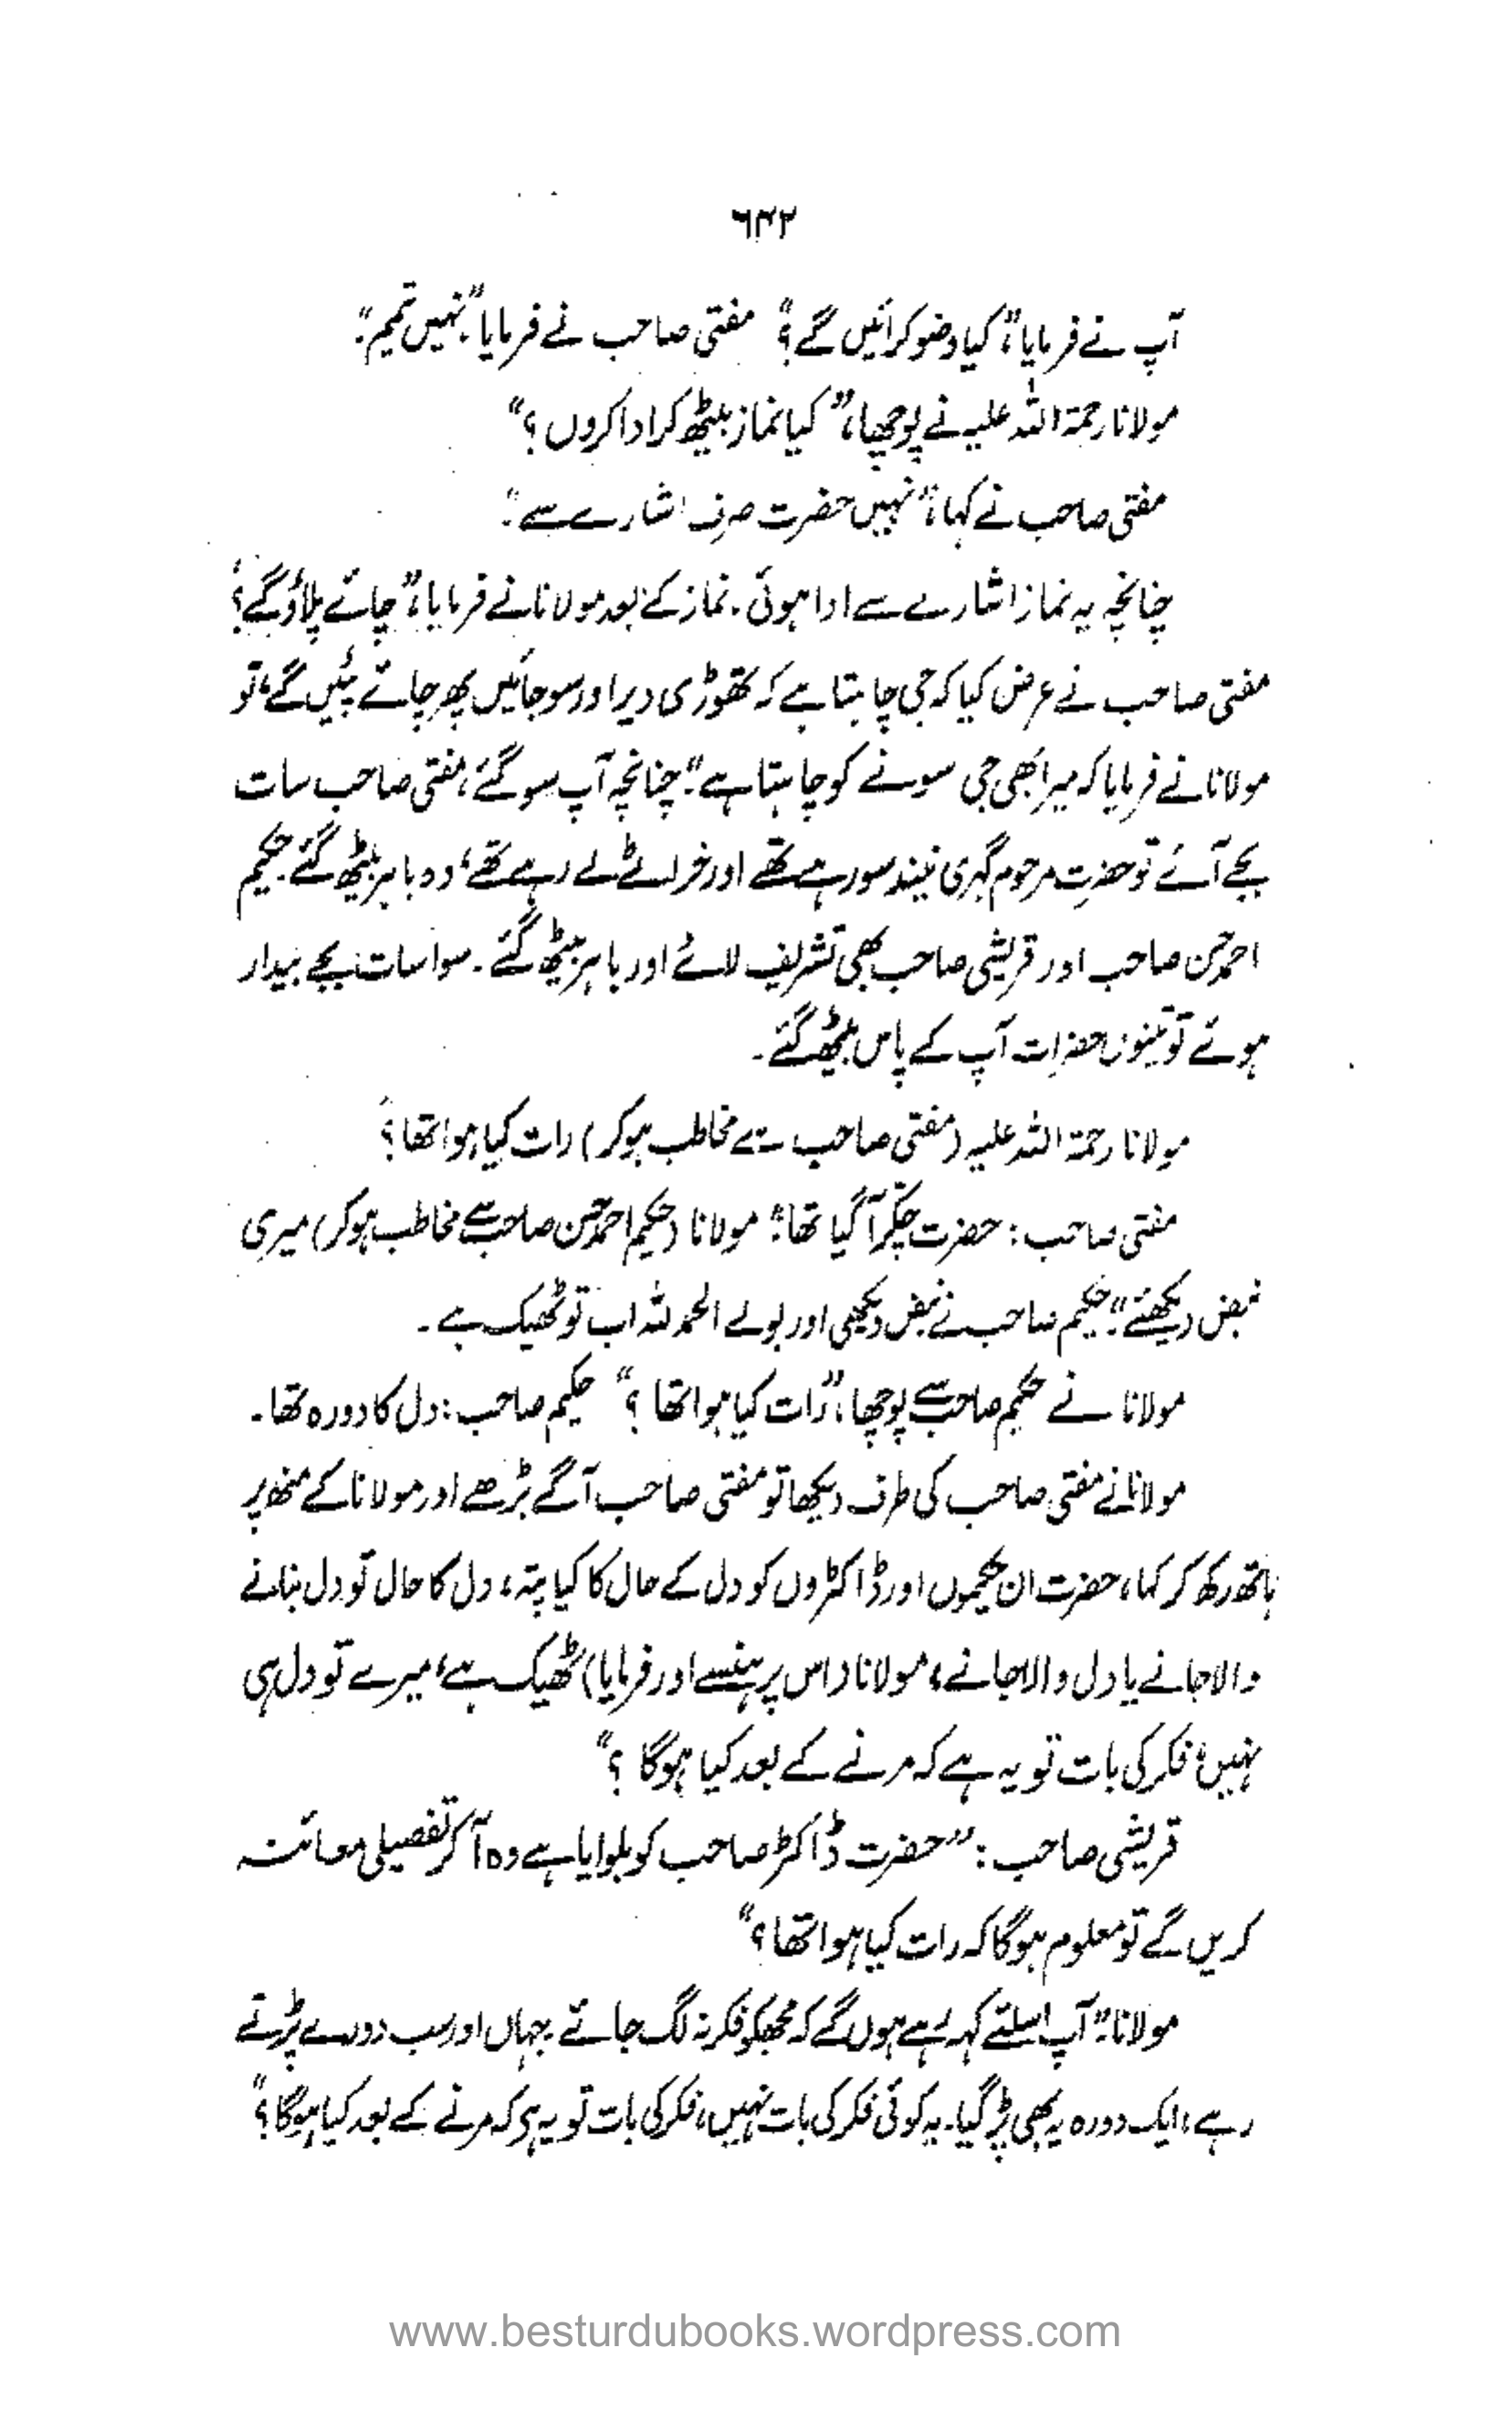 ٦٤٢
آپ نے فرمایا، "کیا وضو کرائیں گے؟" مفتی صاحب نے فرمایا "نہیں تیمم"۔
مولانا رحمۃ اللہ علیہ نے پوچھا، "کیا نماز بیٹھ کر ادا کروں؟"
مفتی صاحب نے کہا، "نہیں حضرت صرف اشارے سے"۔
چنانچہ یہ نماز اشارے سے ادا ہوئی۔ نماز کے بعد مولانا نے فرمایا، "چائے پلاؤ گے؟"
مفتی صاحب نے عرض کیا کہ جی چاہتا ہے کہ تھوڑی دیر اور سو جائیں پھر چائے پئیں گے، تو
مولانا نے فرمایا کہ میرا بھی جی سونے کو چاہتا ہے"۔ چنانچہ آپ سو گئے، مفتی صاحب سات
بجے آئے تو حضرت مرحوم گہری نیند سو رہے تھے اور خراٹے لے رہے تھے، وہ باہر بیٹھ گئے۔ حکیم
احمد حسن صاحب اور قریشی صاحب بھی تشریف لائے اور باہر بیٹھ گئے۔ سوا سات بجے بیدار
ہوئے تو تینوں حضرات آپ کے پاس بیٹھ گئے۔
مولانا رحمۃ اللہ علیہ (مفتی صاحب سے مخاطب ہو کر) رات کیا ہوا تھا؟"
مفتی صاحب: حضرت چکر آ گیا تھا"۔ مولانا (حکیم احمد حسن صاحب سے مخاطب ہو کر) میری
نبض دیکھئے"۔ حکیم صاحب نے نبض دیکھی اور بولے الحمد للہ اب تو ٹھیک ہے۔
مولانا نے حکیم صاحب سے پوچھا، "رات کیا ہوا تھا؟" حکیم صاحب: دل کا دورہ تھا۔
مولانا نے مفتی صاحب کی طرف دیکھا تو مفتی صاحب آگے بڑھے اور مولانا کے منھ پر
ہاتھ رکھ کر کہا، حضرت ان حکیموں اور ڈاکٹروں کو دل کے حال کا کیا پتہ، دل کا حال تو دل بنانے
والا جانے یا دل والا جانے، مولانا (اس پر ہنسے اور فرمایا) ٹھیک ہے، میرے تو دل ہی
نہیں، فکر کی بات تو یہ ہے کہ مرنے کے بعد کیا ہوگا؟"
قریشی صاحب: "حضرت ڈاکٹر صاحب کو بلوایا ہے وہ آ کر تفصیلی معائنہ
کریں گے تو معلوم ہوگا کہ رات کیا ہوا تھا؟"
مولانا: "آپ اسلئے کہہ رہے ہوں گے کہ مجھکو فکر نہ لگ جائے۔ جہاں اور سب دورے پڑتے
رہے، ایک دورہ یہ بھی پڑ گیا۔ یہ کوئی فکر کی بات نہیں، فکر کی بات تو یہ ہے کہ مرنے کے بعد کیا ہوگا؟"
www.besturdubooks.wordpress.com